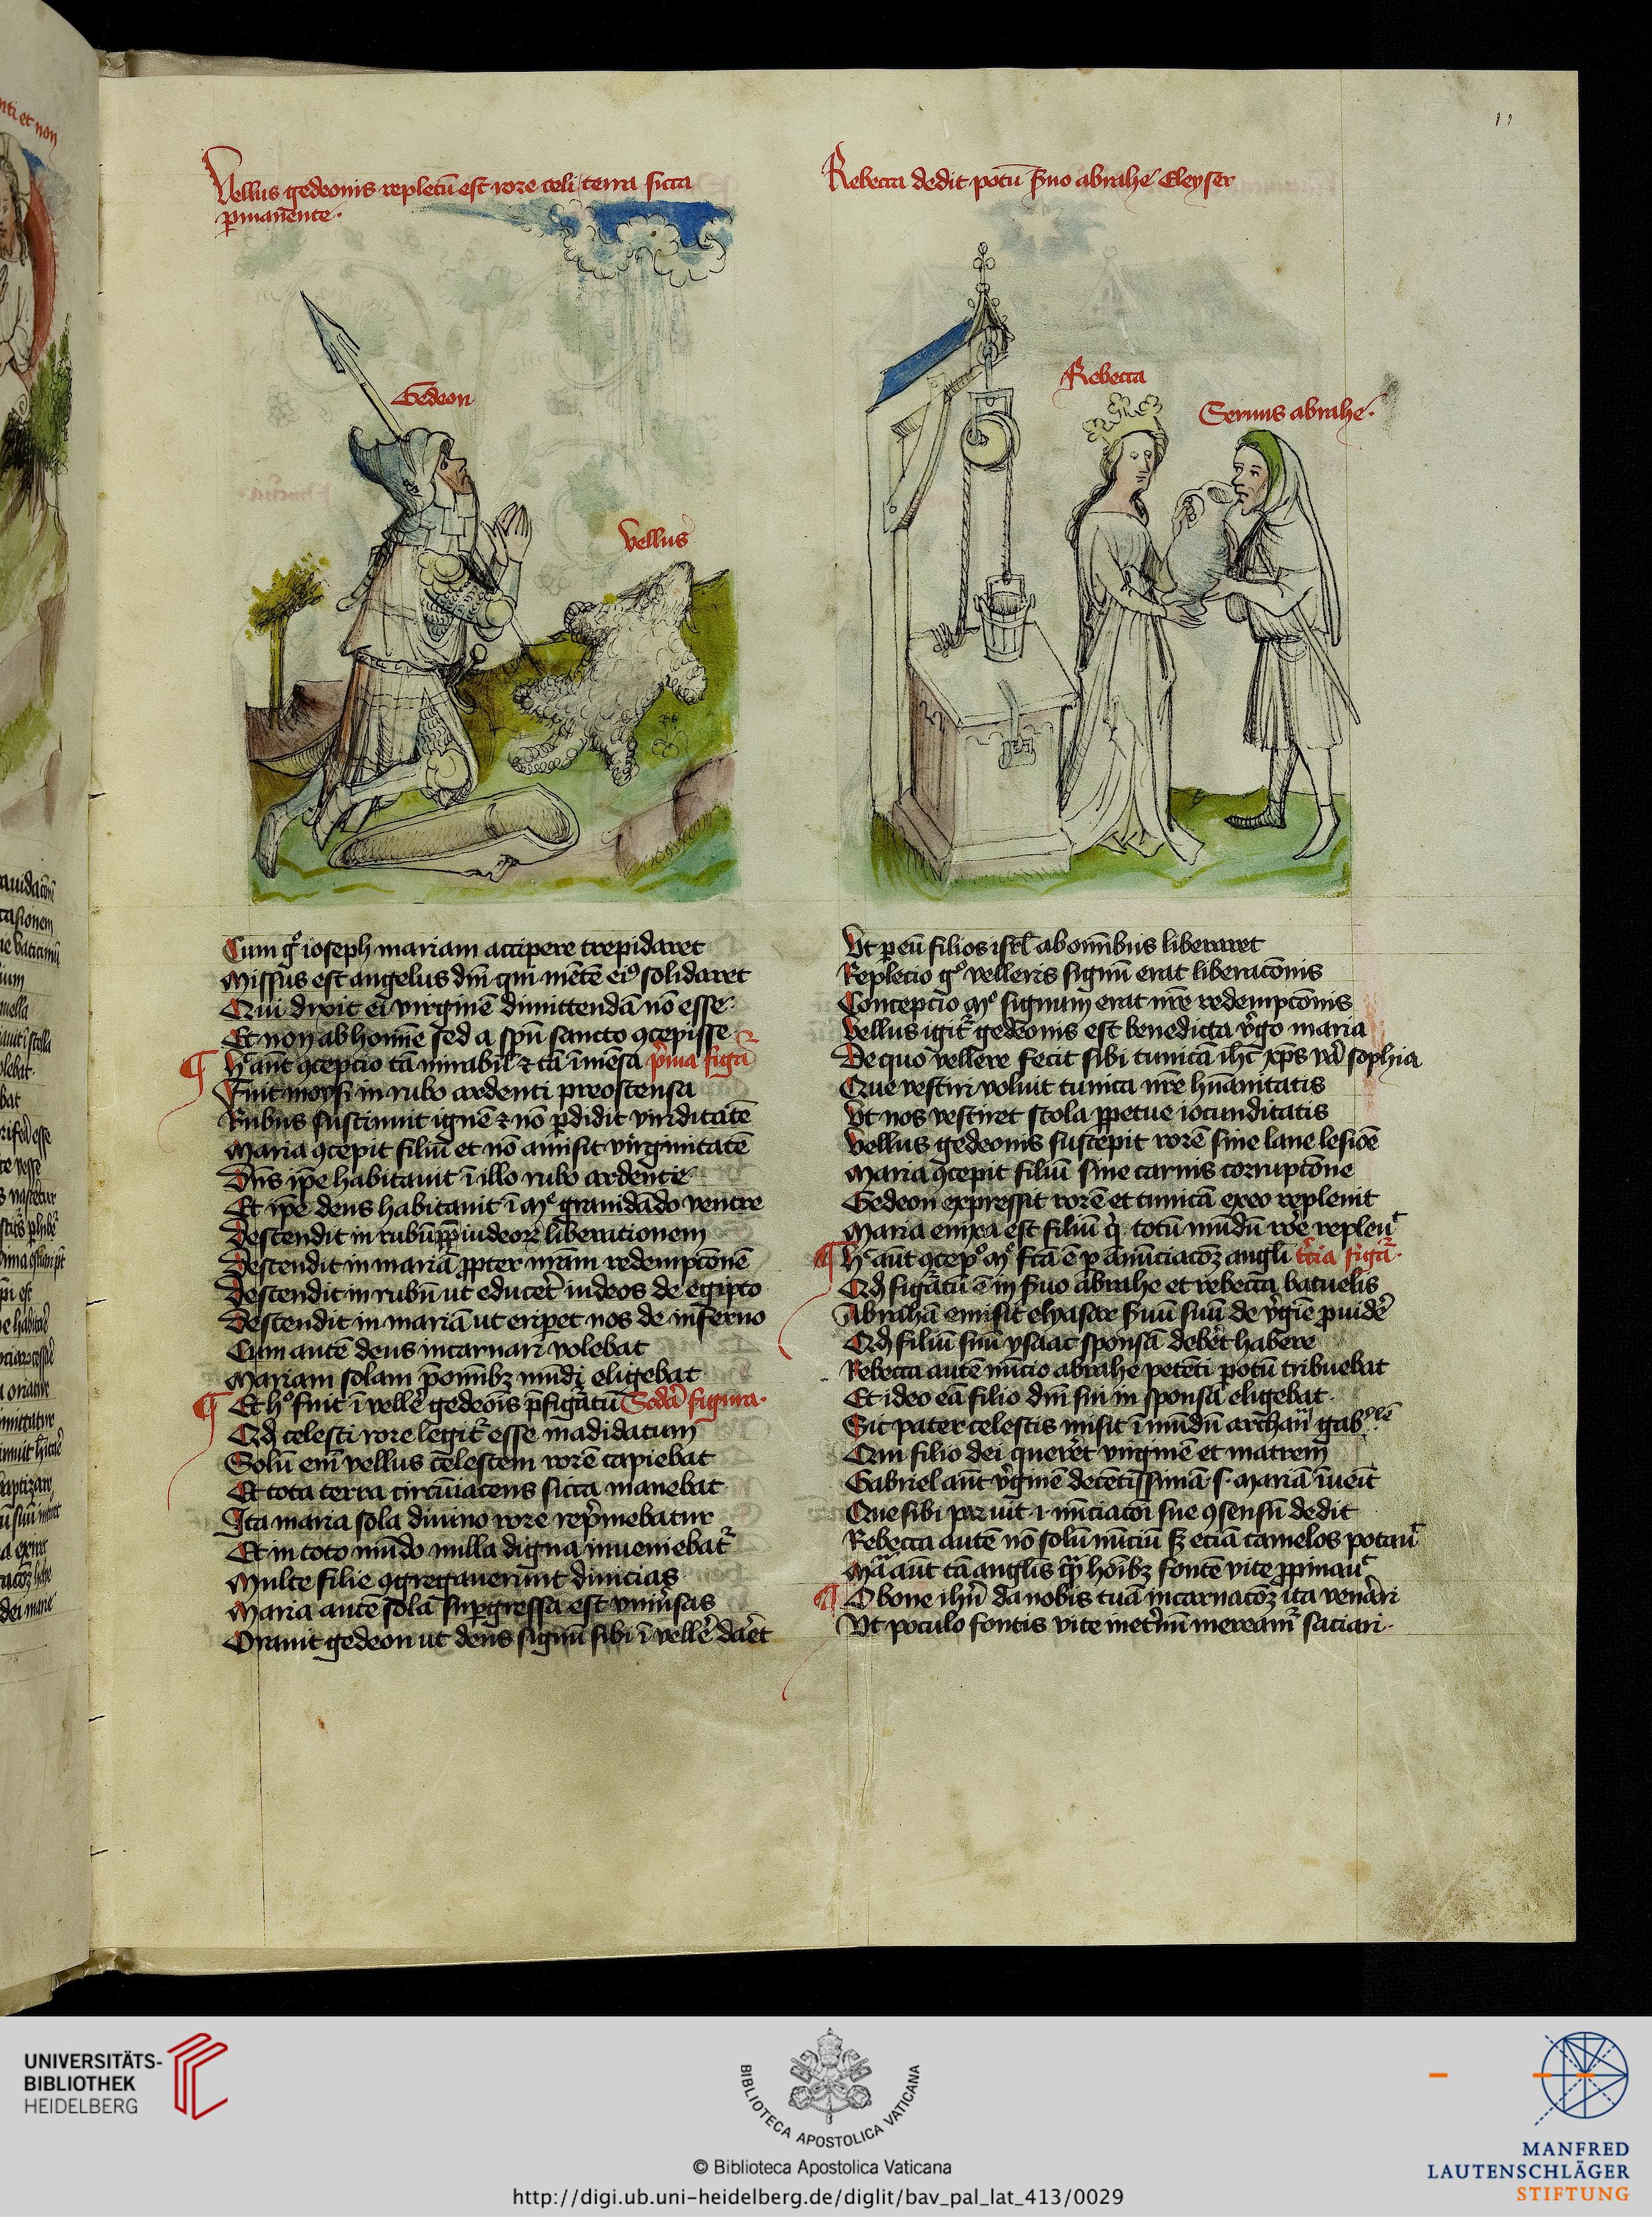 11
Vellus gedeonis repletū est rore celi terra sicca
ꝑmanēte·
Gedeon
Vellus
Cum gͦ ioseph mariam accipere trepidaret
Missus est angelus dn̄i qui mētē eiꝰ solidaret
Qui dixit ei virginē dimittendā nō esse·
Et non ab homīe sed a spū sancto ꝯcepisse
Hͨ aūt ꝯcepcio tā mirabil̓ ⁊ tā īmēsa p̓ma figͣa
Fuit moysi in rubo ardenti preostensa
Rubus sustinuit ignē ⁊ nō ꝑdidit viriditatē
Maria ꝯcepit filiū et nō amisit virginitatē
Dn̄s ip̄e habitauit ī illo rubo ardente
Et ip̄e deus habitauit ī Mͤ grauidādo ventre
Descendit in rubū ꝓp̄ iudeoꝝ liberationem
Descendit in mariā ꝓpter nr̄am redempcōnē
Descendit in rubū ut educet̓ iudeos de egipto
Descendit in mariā ut eriꝑet nos de inferno
Cum autē deus incarnari volebat
Mariam solam p̄ omībꝫ mūdi eligebat
Et hͦ fuit ī velle̓ gedeoīs p̄figͣatū Scd̓a figura·
Qd̓ celesti rore legitᷣ esse madidatum
Solū em̄ vellus celestem rorē capiebat
Et tota terra circūiacens sicca manebat
Ita maria sola diuino rore rep̓mebatur
Et in toto mūdo nulla digna inueniebatᷣ
Multe filie ꝯgregauerūt diuicias
Maria autē sola suꝑgressa est vniu̓sas
Orauit gedeon ut deus signū sibi ī velle̓ dar̄et
Rebecca dedit potū s̓uo abrahe Eleyser
Rebecca
Seruus abrahe·
Vt ꝑ eū filios isrl̄ ab omībus liberaret
Replecio gͦ velleris signū erat liberacōnis
Concepcio Mͤ signum erat nr̄e redempcōnis
Vellus igitᷣ gedeonis est benedicta v̓go maria
De quo vellere fecit sibi tunicā ih̄c xp̄s va̓ sophia
Que vestiri voluit tunica nr̄e hūanitatis
Vt nos vestiret stola ꝑpetue iocunditatis
Vellus gedeonis suscepit rorē sine lane lesiōe
Maria ꝯcepit filiū sine carnis corrupcōne
Gedeon expressit rorē et cuncā ex eo repleuit
Maria enixa est filiū q̓ totū mūdū rōe repleuͭ
Hͨ aūt ꝯcepͦ Mͤ fcā ē ꝑ anūciacōꝫ angl̓i tc̓ia figͣ·
Qd̓ figͣatū ē in s̓uo abrahe et rebecca batuelis
Abrahā emisit elyasar s̓uū suū de v̓gīe ꝓuide̓
Qd̓ filiū suū ysaac sponsā debe̓t habere
Rebecca autē nūcio abrahe petēti potū tribuebat
Et ideo eā filio dn̄i sui in sponsā eligebat·
Sic pater celestis misit ī mūdū archan̄ gabͬͥͤlē
Qui filio dei quere̓t virginē et matrem
Gabriel aūt v̓ginē decētissimā ·s· mariā īueīt
Que sibi paruit ·i· nūciacōi sue ꝯsensū dedit
Rebecca autē nō solū nūciū sꝫ etiā camelos potauͭ
Mͣa aūt tā angl̓is qͣ̄ hoībꝫ fontē vite ꝓpinauͭ
O bone ih̄u da nobis tuā incarnacōꝫ ita vena̓ri
Vt poculo fontis vite in et̓nū mereamᷣ saciari·
UNIVERSITÄTS-
BIBLIOTHEK
HEIDELBERG
BIBLIOTECA APOSTOLICA VATICANA
© Biblioteca Apostolica Vaticana
http://digi.ub.uni-heidelberg.de/diglit/bav_pal_lat_413/0029
MANFRED
LAUTENSCHLÄGER
STIFTUNG